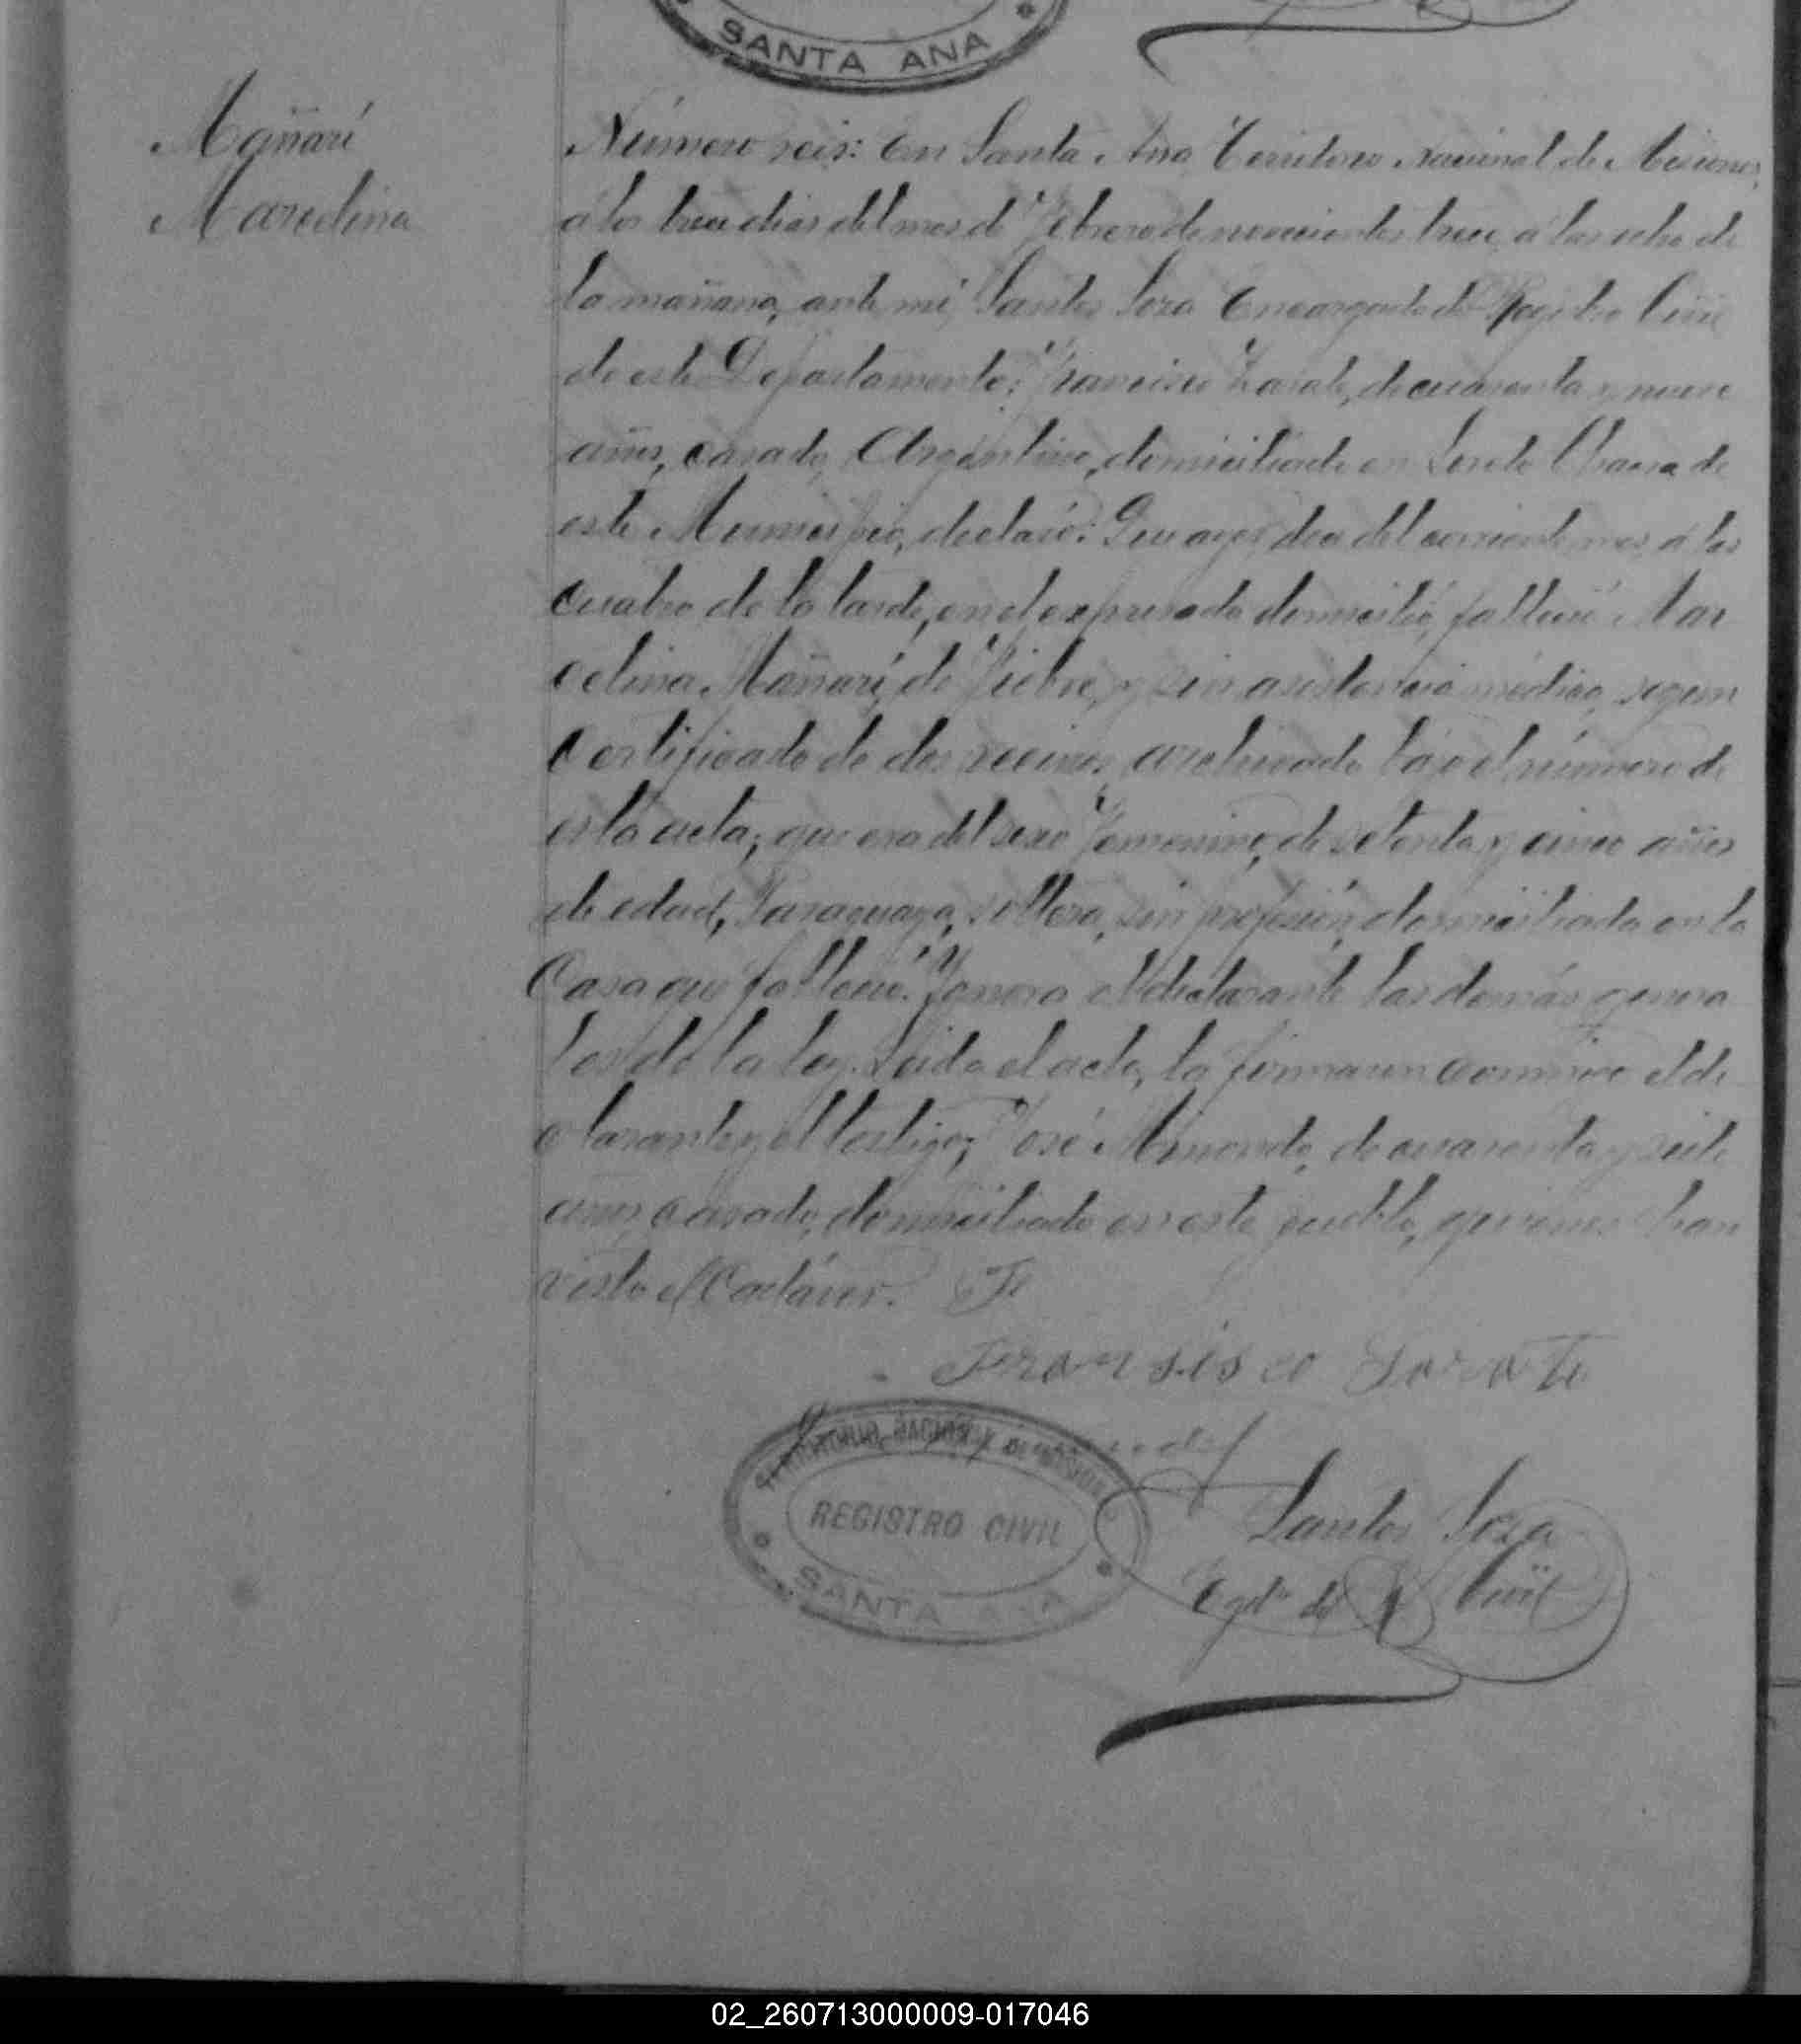 SANTA ANA
Mañarí
Marcelina
Número seis: En Santa Ana Territorio Nacional de Misiones,
á los trece dias del mes de Febrero de novecientos trece, á las ocho de
la mañana, ante mi, Santos Soza Encargado del Registro Civil
de este Departamento: Francisco Zarate, de cuarenta y nueve
años, casado, Argentino, domiciliado en Loreto Chacra de
este Municipio, declaró: Que ayer, doce del corriente mes, á las
cuatro de la tarde, en el expresado domicilio, falleció Mar
celina Mañarí, de Fiebre, y sin asistencia médica, segun
certificado de dos vecinos, archivado bajo el número de
esta acta; que era del sexo Femenino, de setenta y cinco años
de edad, Paraguaya, soltera, sin profesión, domiciliada en la
Casa que falleció. Ignora el declarante las demás genera
les de la ley. Leida el acta, la firmaron conmigo el de
clarante y el testigo; José Almondo, de cuarenta y siete
años, casado, domiciliado en este pueblo, quienes han
visto el Cadáver. F
Fransisco Sarate
TERRITORIO NACIONAL DE MISIONES
REGISTRO CIVIL
SANTA ANA
Santos Soza
Egdo del R Civil
02_260713000009-017046